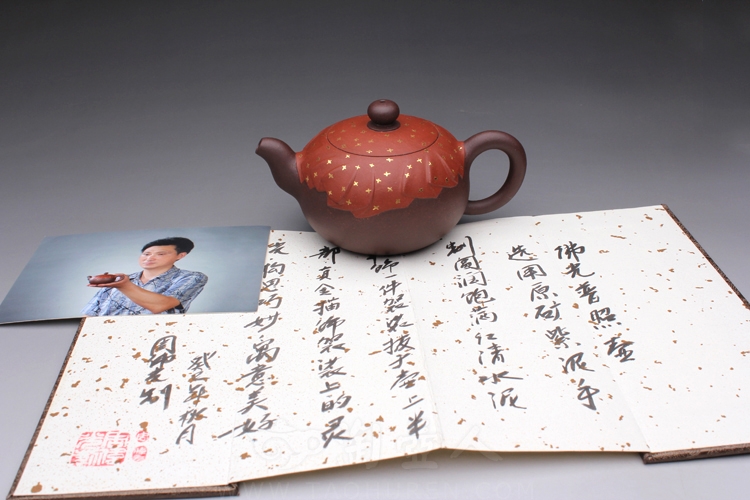 佛光普照壶
选用原矿紫泥手
制圆润饱满红清水泥
饰件袈裟披于壶上半
部真金描饰袈裟上的灵
构思巧妙寓意美好
癸巳年秋月
制